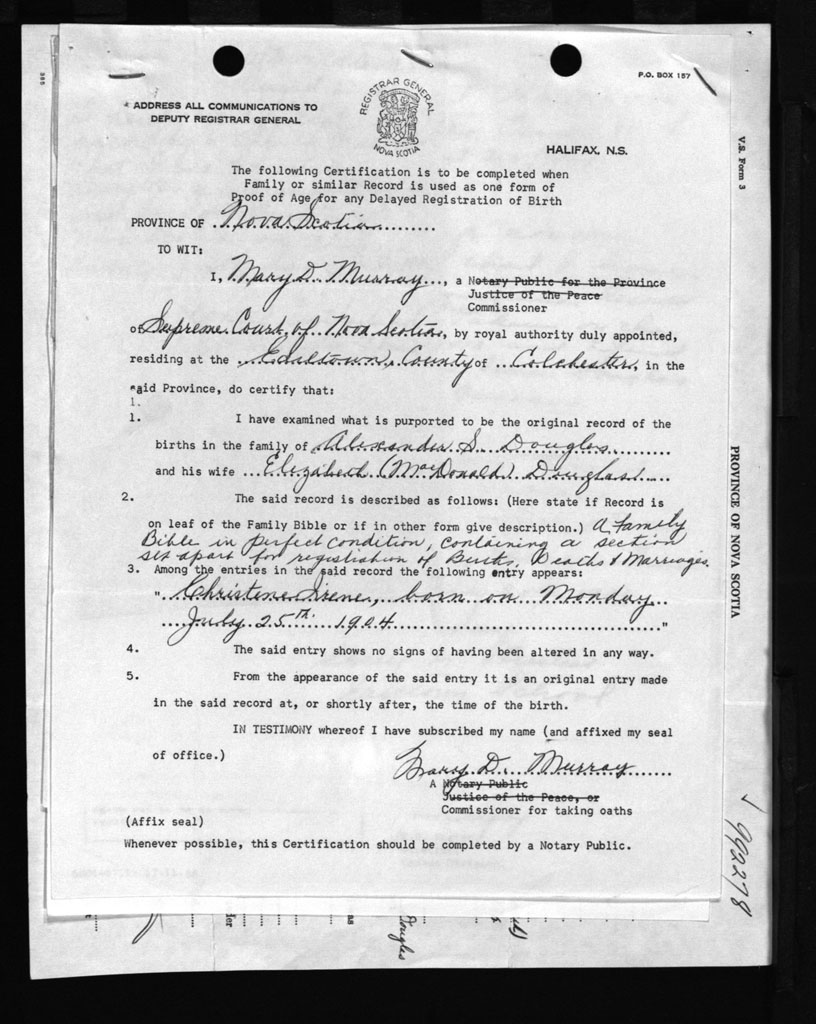 P.O. BOX 157
ADDRESS ALL COMMUNICATIONS TO
DEPUTY REGISTRAR GENERAL
REGISTRAR GENERAL
NOVA SCOTIA
HALIFAX, N.S.
The following Certification is to be completed when
Family or similar Record is used as one form of
Proof of Age for any Delayed Registration of Birth
PROVINCE OF Nova Scotia
TO WIT:
I, Mary D. Murray, a Notary Public for the Province
Justice of the Peace
Commissioner
of Supreme Court of Nova Scotia, by royal authority duly appointed,
residing at the Earltown, County of Colchester, in the
said Province, do certify that:
1.
1. I have examined what is purported to be the original record of the
births in the family of Alexander S. Douglas
and his wife Elizabeth (MacDonald) Douglas
2. The said record is described as follows: (Here state if Record is
on leaf of the Family Bible or if in other form give description.) A family
Bible in perfect condition, containing a section
set apart for registration of Births, Deaths & Marriages.
3. Among the entries in the said record the following entry appears:
" Christene Irene, born on Monday
July 25th 1904 "
4. The said entry shows no signs of having been altered in any way.
5. From the appearance of the said entry it is an original entry made
in the said record at, or shortly after, the time of the birth.
IN TESTIMONY whereof I have subscribed my name (and affixed my seal
of office.)
Mary D. Murray
A Notary Public
Justice of the Peace, or
Commissioner for taking oaths
(Affix seal)
Whenever possible, this Certification should be completed by a Notary Public.
V.S. Form 3
PROVINCE OF NOVA SCOTIA
992278
Douglas